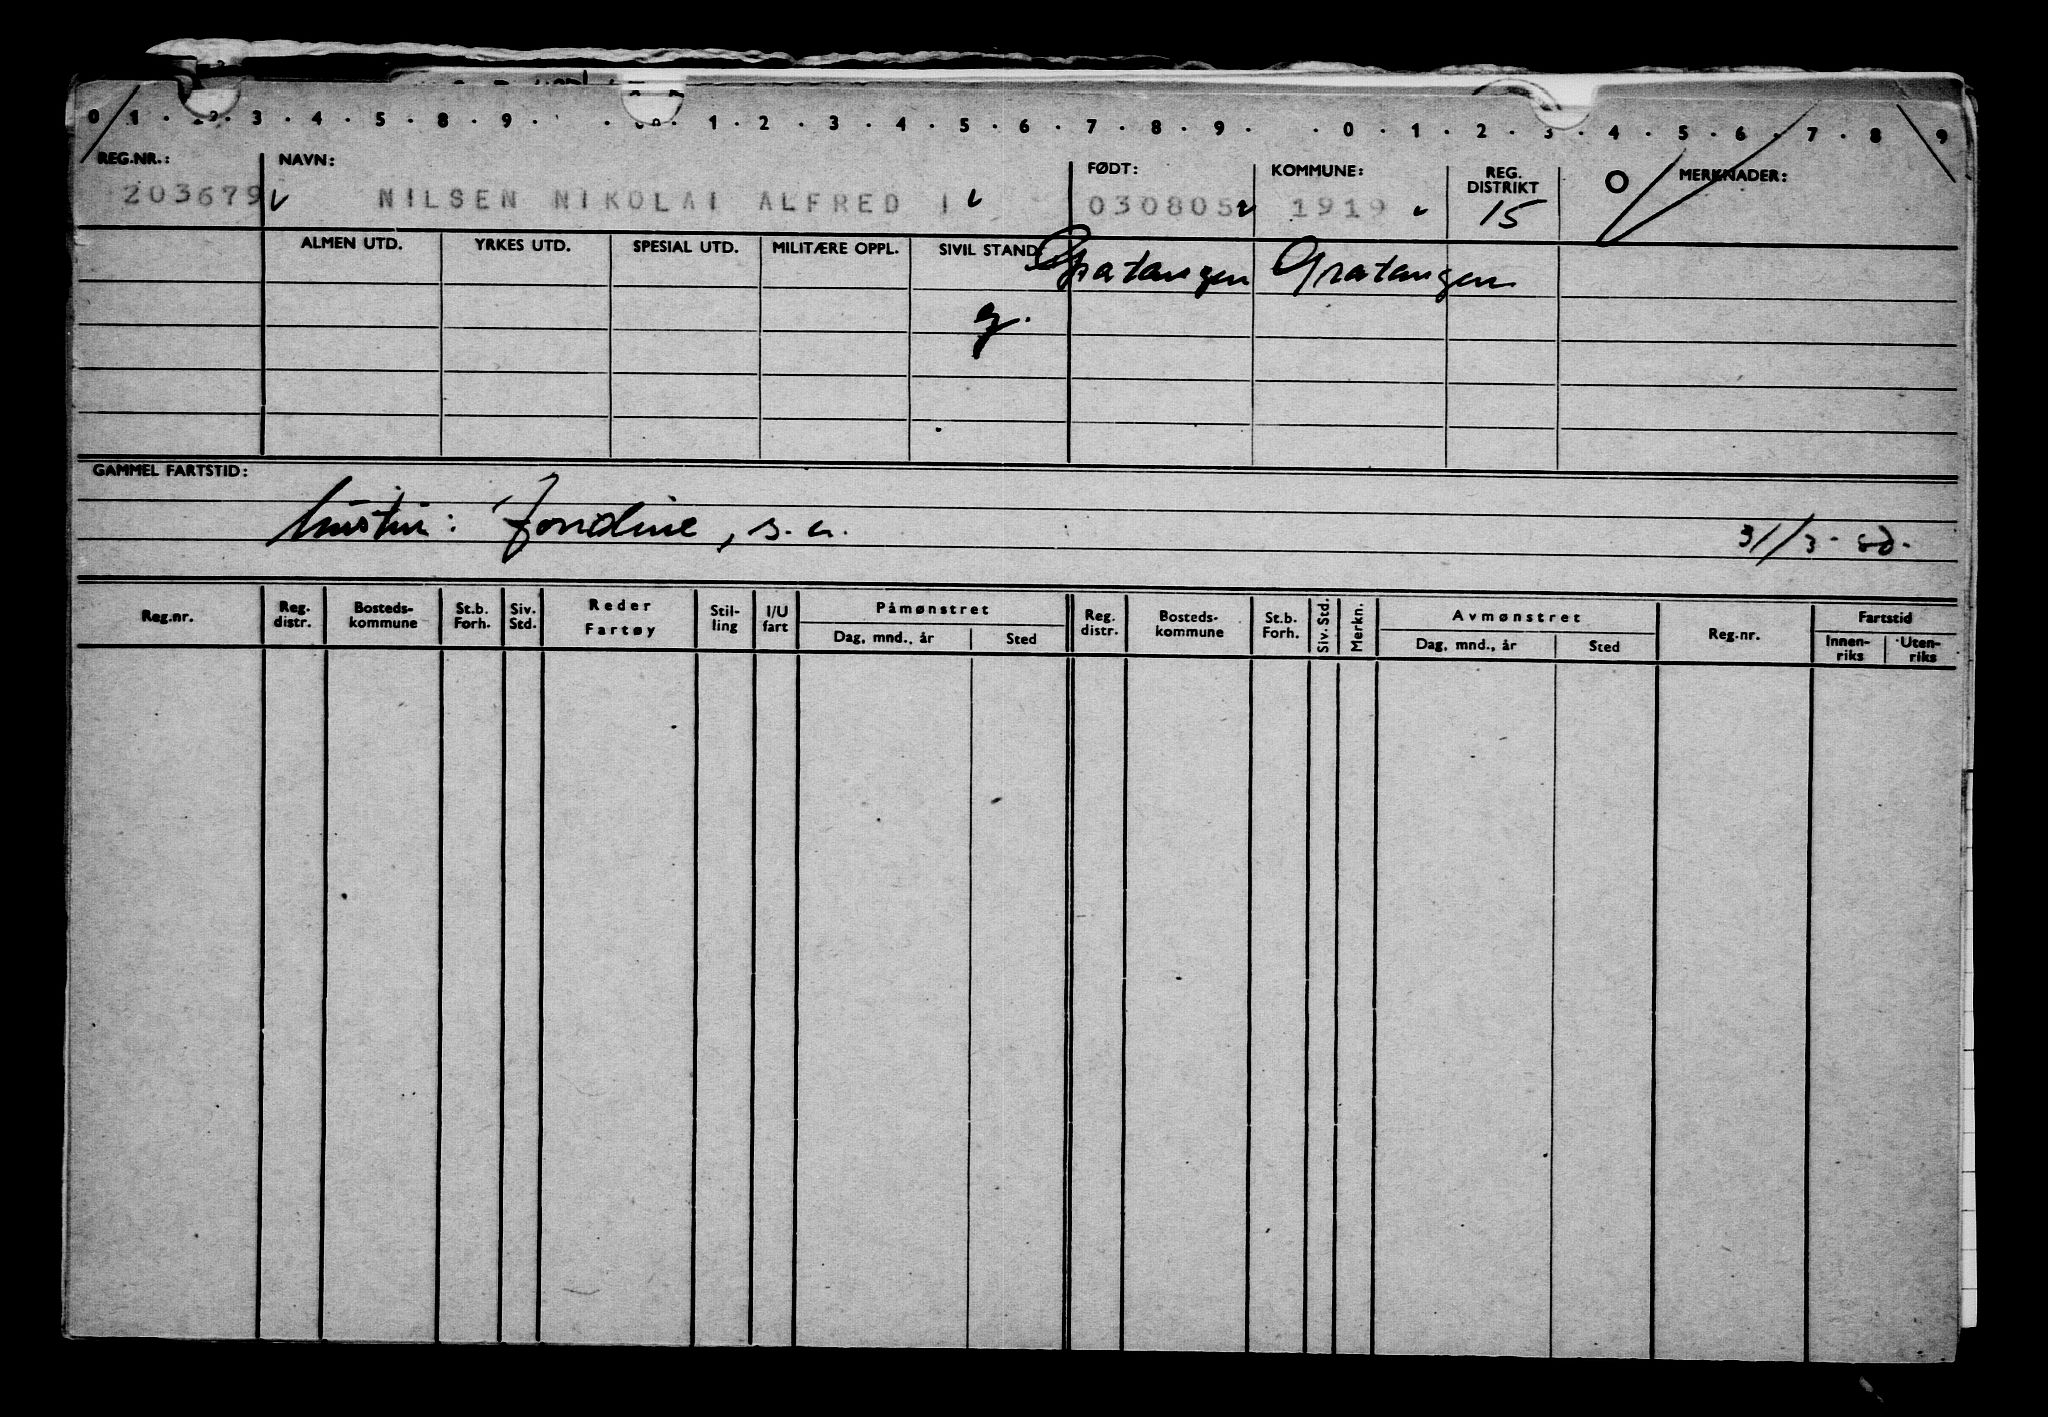 0 1 · 2 · 3 · 4 · 5 · 8 · 9 · · 0 · 1 · 2 · 3 · 4 · 5 · 6 · 7 · 8 · 9 · · 0 · 1 · 2 · 3 · 4 · 5 · 6 · 7 · 8 · 9
REG.NR.: NAVN: FØDT: KOMMUNE: REG. DISTRIKT O MERKNADER:
203679 NILSEN NIKOLAI ALFRED I 030805 1919 15
ALMEN UTD. YRKES UTD. SPESIAL UTD. MILITÆRE OPPL. SIVIL STAND Gratangen Gratangen
g.
GAMMEL FARTSTID:
hustru: Jordine, s.a. 31/3-
Reg.nr. Reg. distr. Bosteds-kommune St.b. Forh. Siv. Std. Reder Fartøy Stil-ling I/U fart Påmønstret Reg. distr. Bosteds-kommune St.b. Forh. Siv. Std. Merkn. Avmønstret Reg.nr. Fartstid
Dag, mnd., år Sted Dag, mnd., år Sted Innen-riks Uten-riks